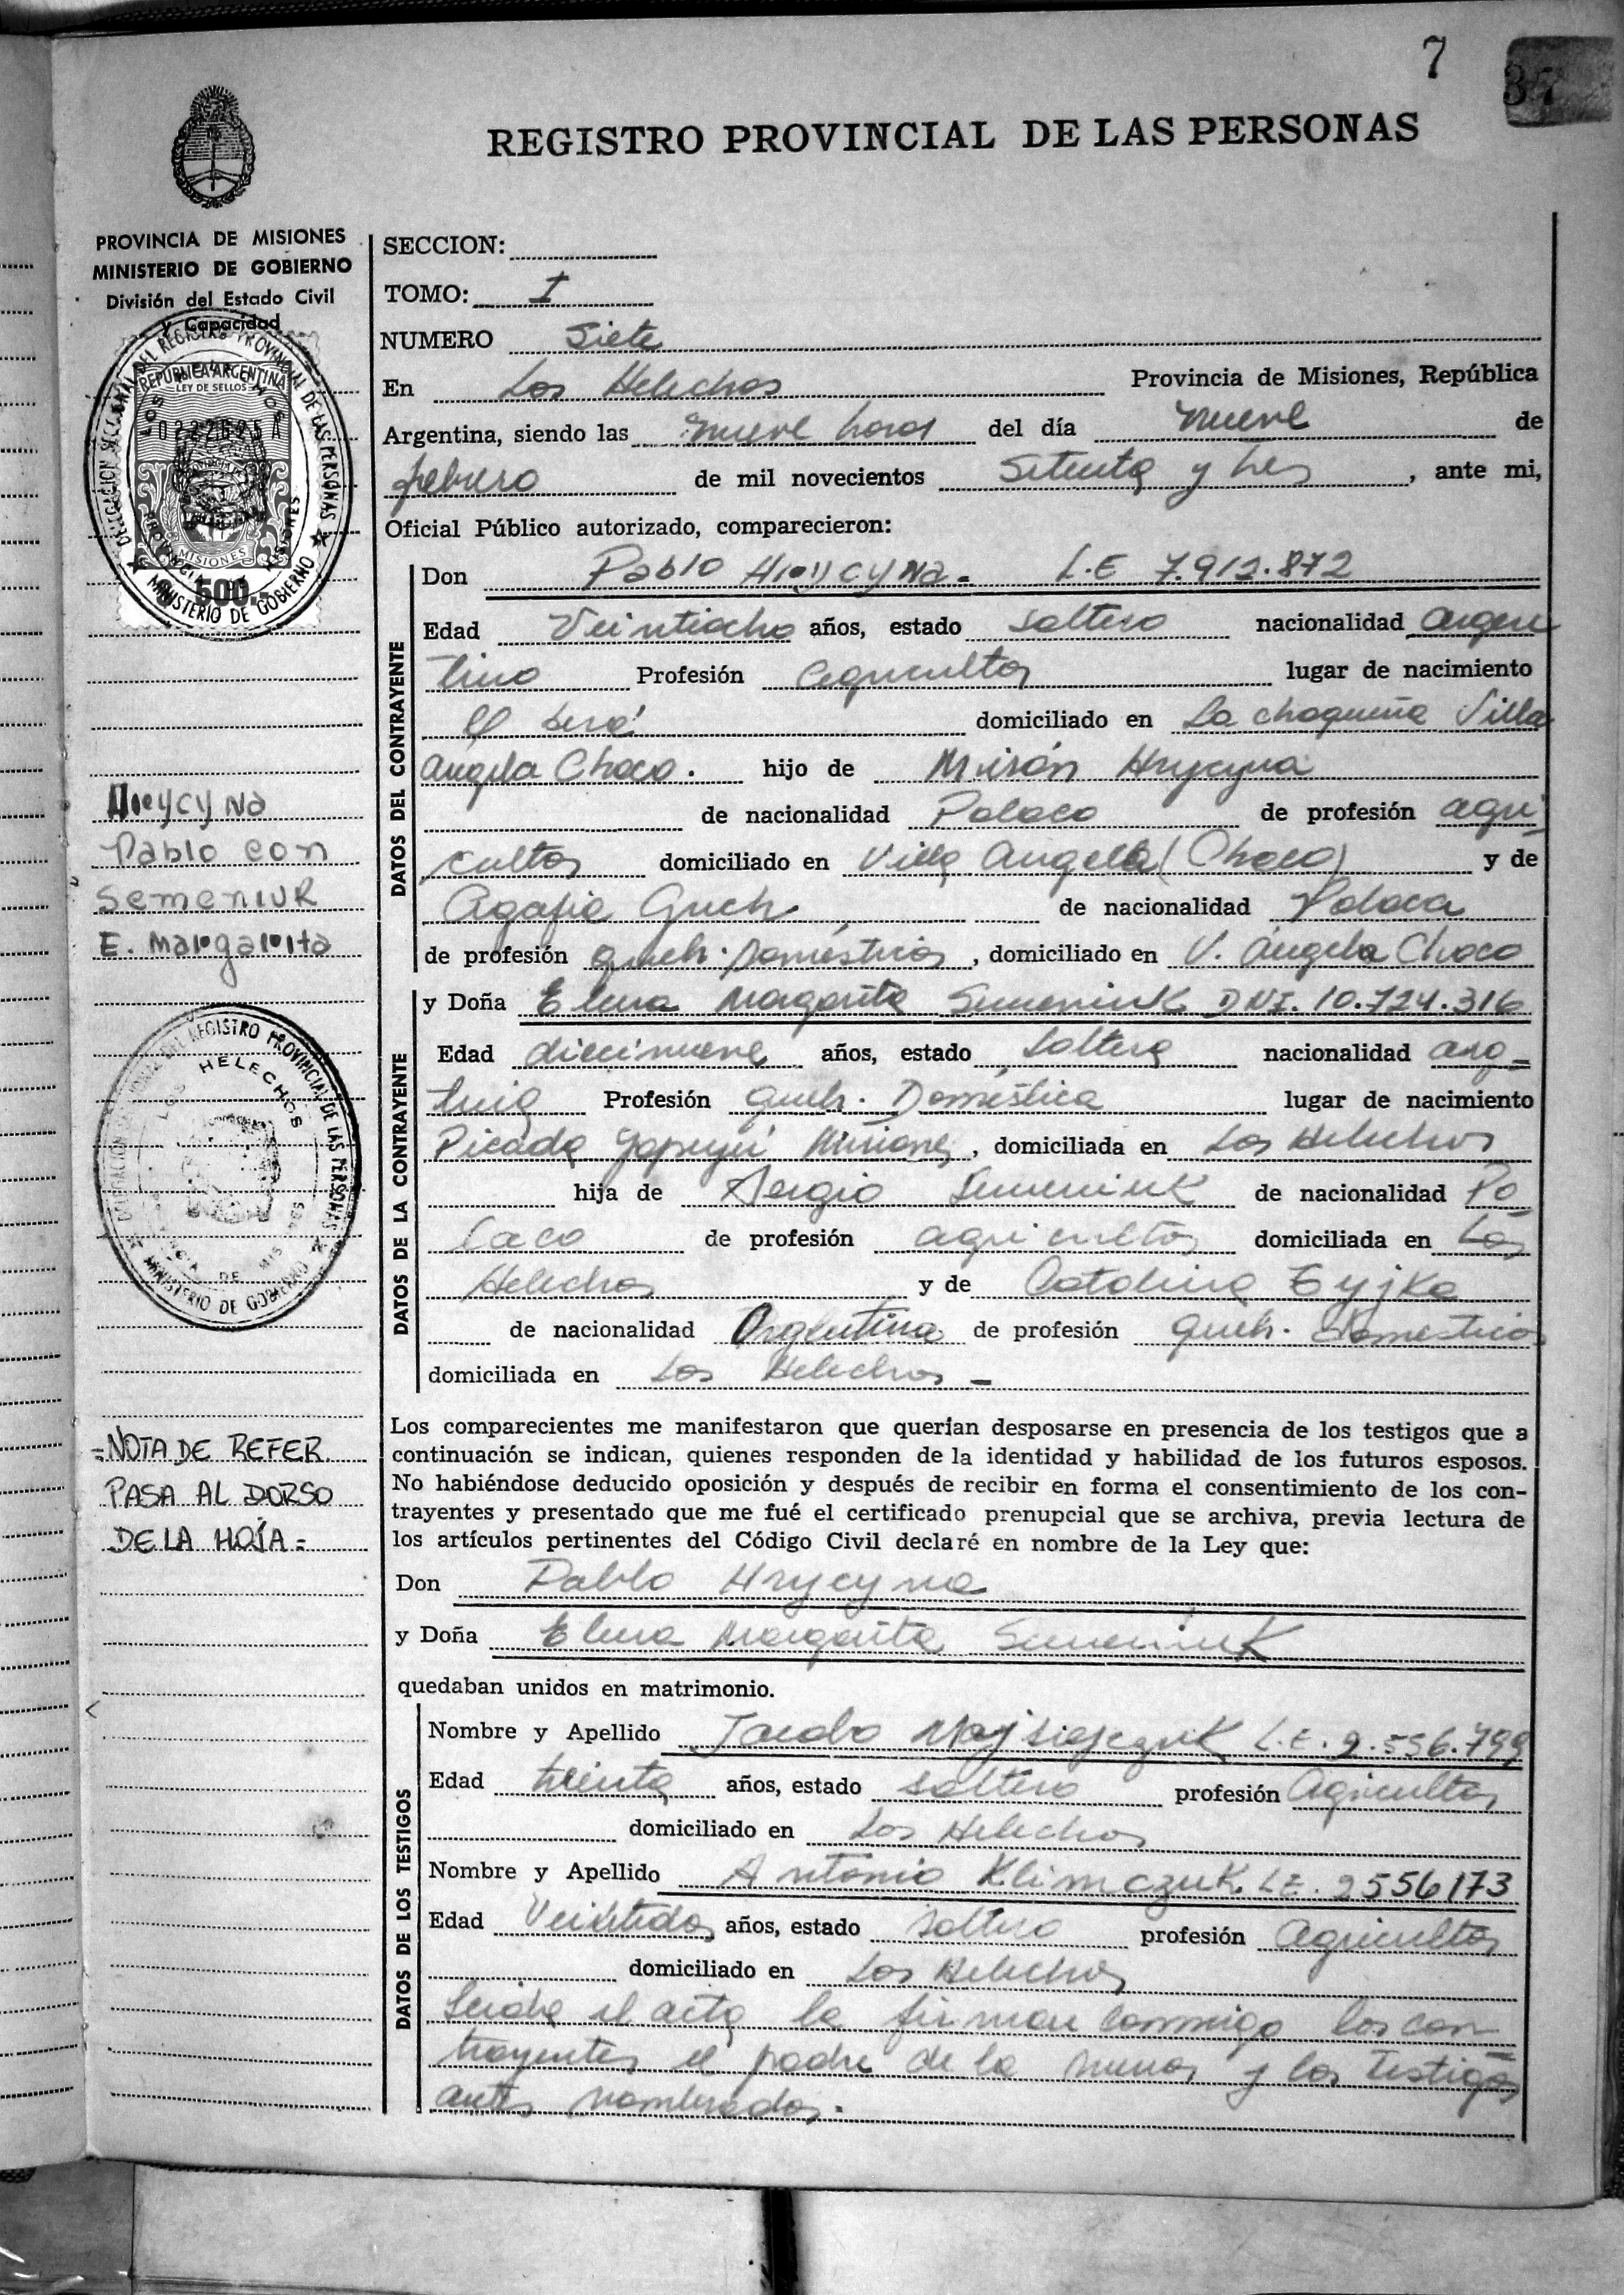 7
37
REGISTRO PROVINCIAL DE LAS PERSONAS
PROVINCIA DE MISIONES
MINISTERIO DE GOBIERNO
División del Estado Civil
y Capacidad
REPUBLICA ARGENTINA
LEY DE SELLOS
MISIONES
$ 500.-
MINISTERIO DE GOBIERNO
SECCION:
TOMO: I
NUMERO Siete
En Los Helechos Provincia de Misiones, República
Argentina, siendo las nueve horas del día nueve de
febrero de mil novecientos Setenta y tres, ante mi,
Oficial Público autorizado, comparecieron:
DATOS DEL CONTRAYENTE
Don Pablo Hrycyna. L.E 7.912.872
Edad Veintiocho años, estado soltero nacionalidad argen
tino Profesión agricultor lugar de nacimiento
domiciliado en La chaqueña Villa
Angela Chaco. hijo de Mirón Hrycyna
de nacionalidad Polaco de profesión agri
cultor domiciliado en Villa Angela (Chaco) y de
Agafia de nacionalidad Polaca
de profesión queh. Domésticos, domiciliado en V. Angela Chaco
DATOS DE LA CONTRAYENTE
y Doña Elena Margarita Semeniuk DNI. 10.724.316
Edad diecinueve años, estado Soltera nacionalidad arg-
tina Profesión queh. Doméstica lugar de nacimiento
Picada Yapeyú Misiones, domiciliada en Los Helechos
hija de Sergio Semeniuk de nacionalidad Po
laco de profesión agricultor domiciliada en Los
Helechos y de Catalina Tyjka
de nacionalidad Argentina de profesión queh. domésticos
domiciliada en Los Helechos -
Hrycyna
Pablo con
Semeniuk
E. Margarita
REGISTRO PROVINCIAL DE LAS PERSONAS
LOS HELECHOS
MINISTERIO DE GOBIERNO
=NOTA DE REFER.
PASA AL DORSO
DE LA HOJA=
Los comparecientes me manifestaron que querían desposarse en presencia de los testigos que a
continuación se indican, quienes responden de la identidad y habilidad de los futuros esposos.
No habiéndose deducido oposición y después de recibir en forma el consentimiento de los con-
trayentes y presentado que me fué el certificado prenupcial que se archiva, previa lectura de
los artículos pertinentes del Código Civil declaré en nombre de la Ley que:
Don Pablo Hrycyna
y Doña Elena Margarita Semeniuk
quedaban unidos en matrimonio.
DATOS DE LOS TESTIGOS
Nombre y Apellido Jacobo L.E.
Edad treinta años, estado soltero profesión Agricultor
domiciliado en Los Helechos
Nombre y Apellido Antonio Klimczuk. LE. 2556173
Edad Veintidos años, estado soltero profesión Agricultor
domiciliado en Los Helechos
Leida el acta la firman conmigo los con
trayentes el padre de la menor y los testigos
antes nombrados.